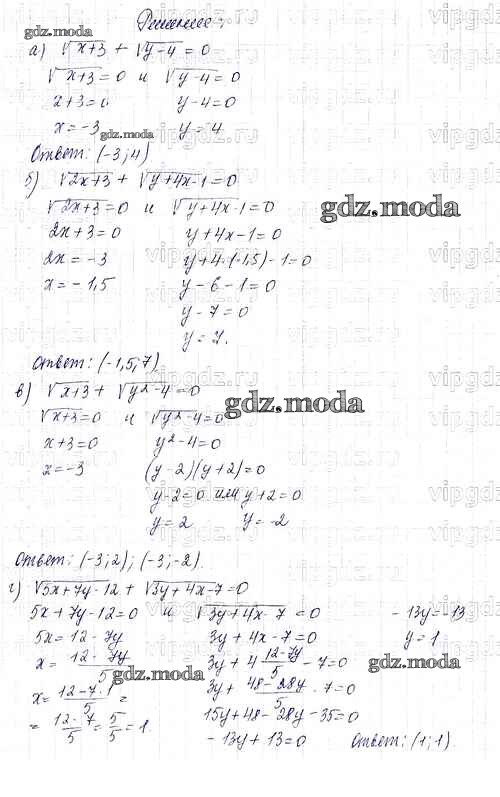 Решение:
а) √x+3 + √y-4 = 0
√x+3 = 0 и √y-4 = 0
x+3=0 y-4=0
x=-3 y=4
Ответ: (-3;4)
б) √2x+3 + √y+4x-1 = 0
√2x+3 = 0 и √y+4x-1 = 0
2x+3=0 y+4x-1=0
2x=-3 y+4·(-1,5)-1=0
x=-1,5 y-6-1=0
y-7=0
y=7.
Ответ: (-1,5;7)
в) √x+3 + √y²-4 = 0
√x+3=0 и √y²-4=0
x+3=0 y²-4=0
x=-3 (y-2)(y+2)=0
y-2=0 или y+2=0
y=2 y=-2
Ответ: (-3;2); (-3;-2).
г) √5x+7y-12 + √3y+4x-7=0
5x+7y-12=0 и √3y+4x-7=0 -13y=-13
5x=12-7y 3y+4x-7=0 y=1
x= 12-7y/5 3y+4 12-7y/5 -7=0
x= 12-7·1/5 = 3y+ 48-28y/5 -7=0
= 12-7/5 = 5/5 = 1. 15y+48-28y-35=0
-13y+13=0 Ответ: (1;1).
gdz.moda
gdz.moda
gdz.moda
gdz.moda
gdz.moda
gdz.moda
vipgdz.ru